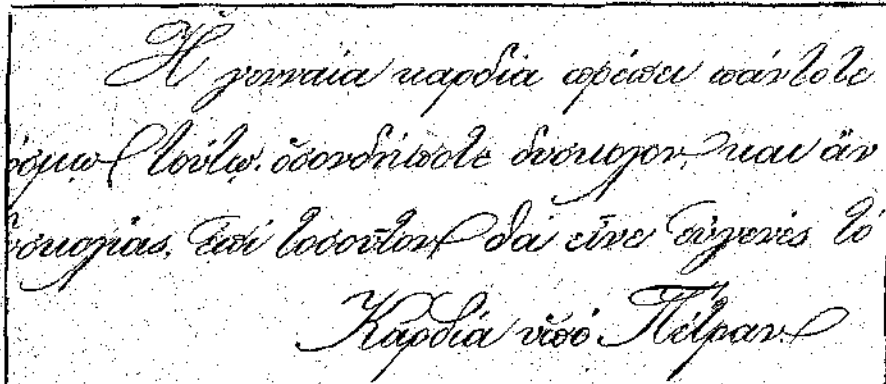 Ἡ γενναία καρδία πρέπει πάντοτε
όσμῳ τούτῳ. ὁσονδήποτε δύσκολον, και ἄν
υσκολίας, ἐπί τοσοῦτον θά εἶνε εὐγενές τό
Καρδία ὑπό Πέτραν